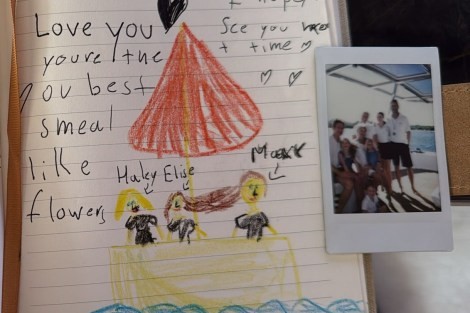 Love you
youre the
you best
smeal
like
flowers
hope
See you
t time
Haley Elise
Mark